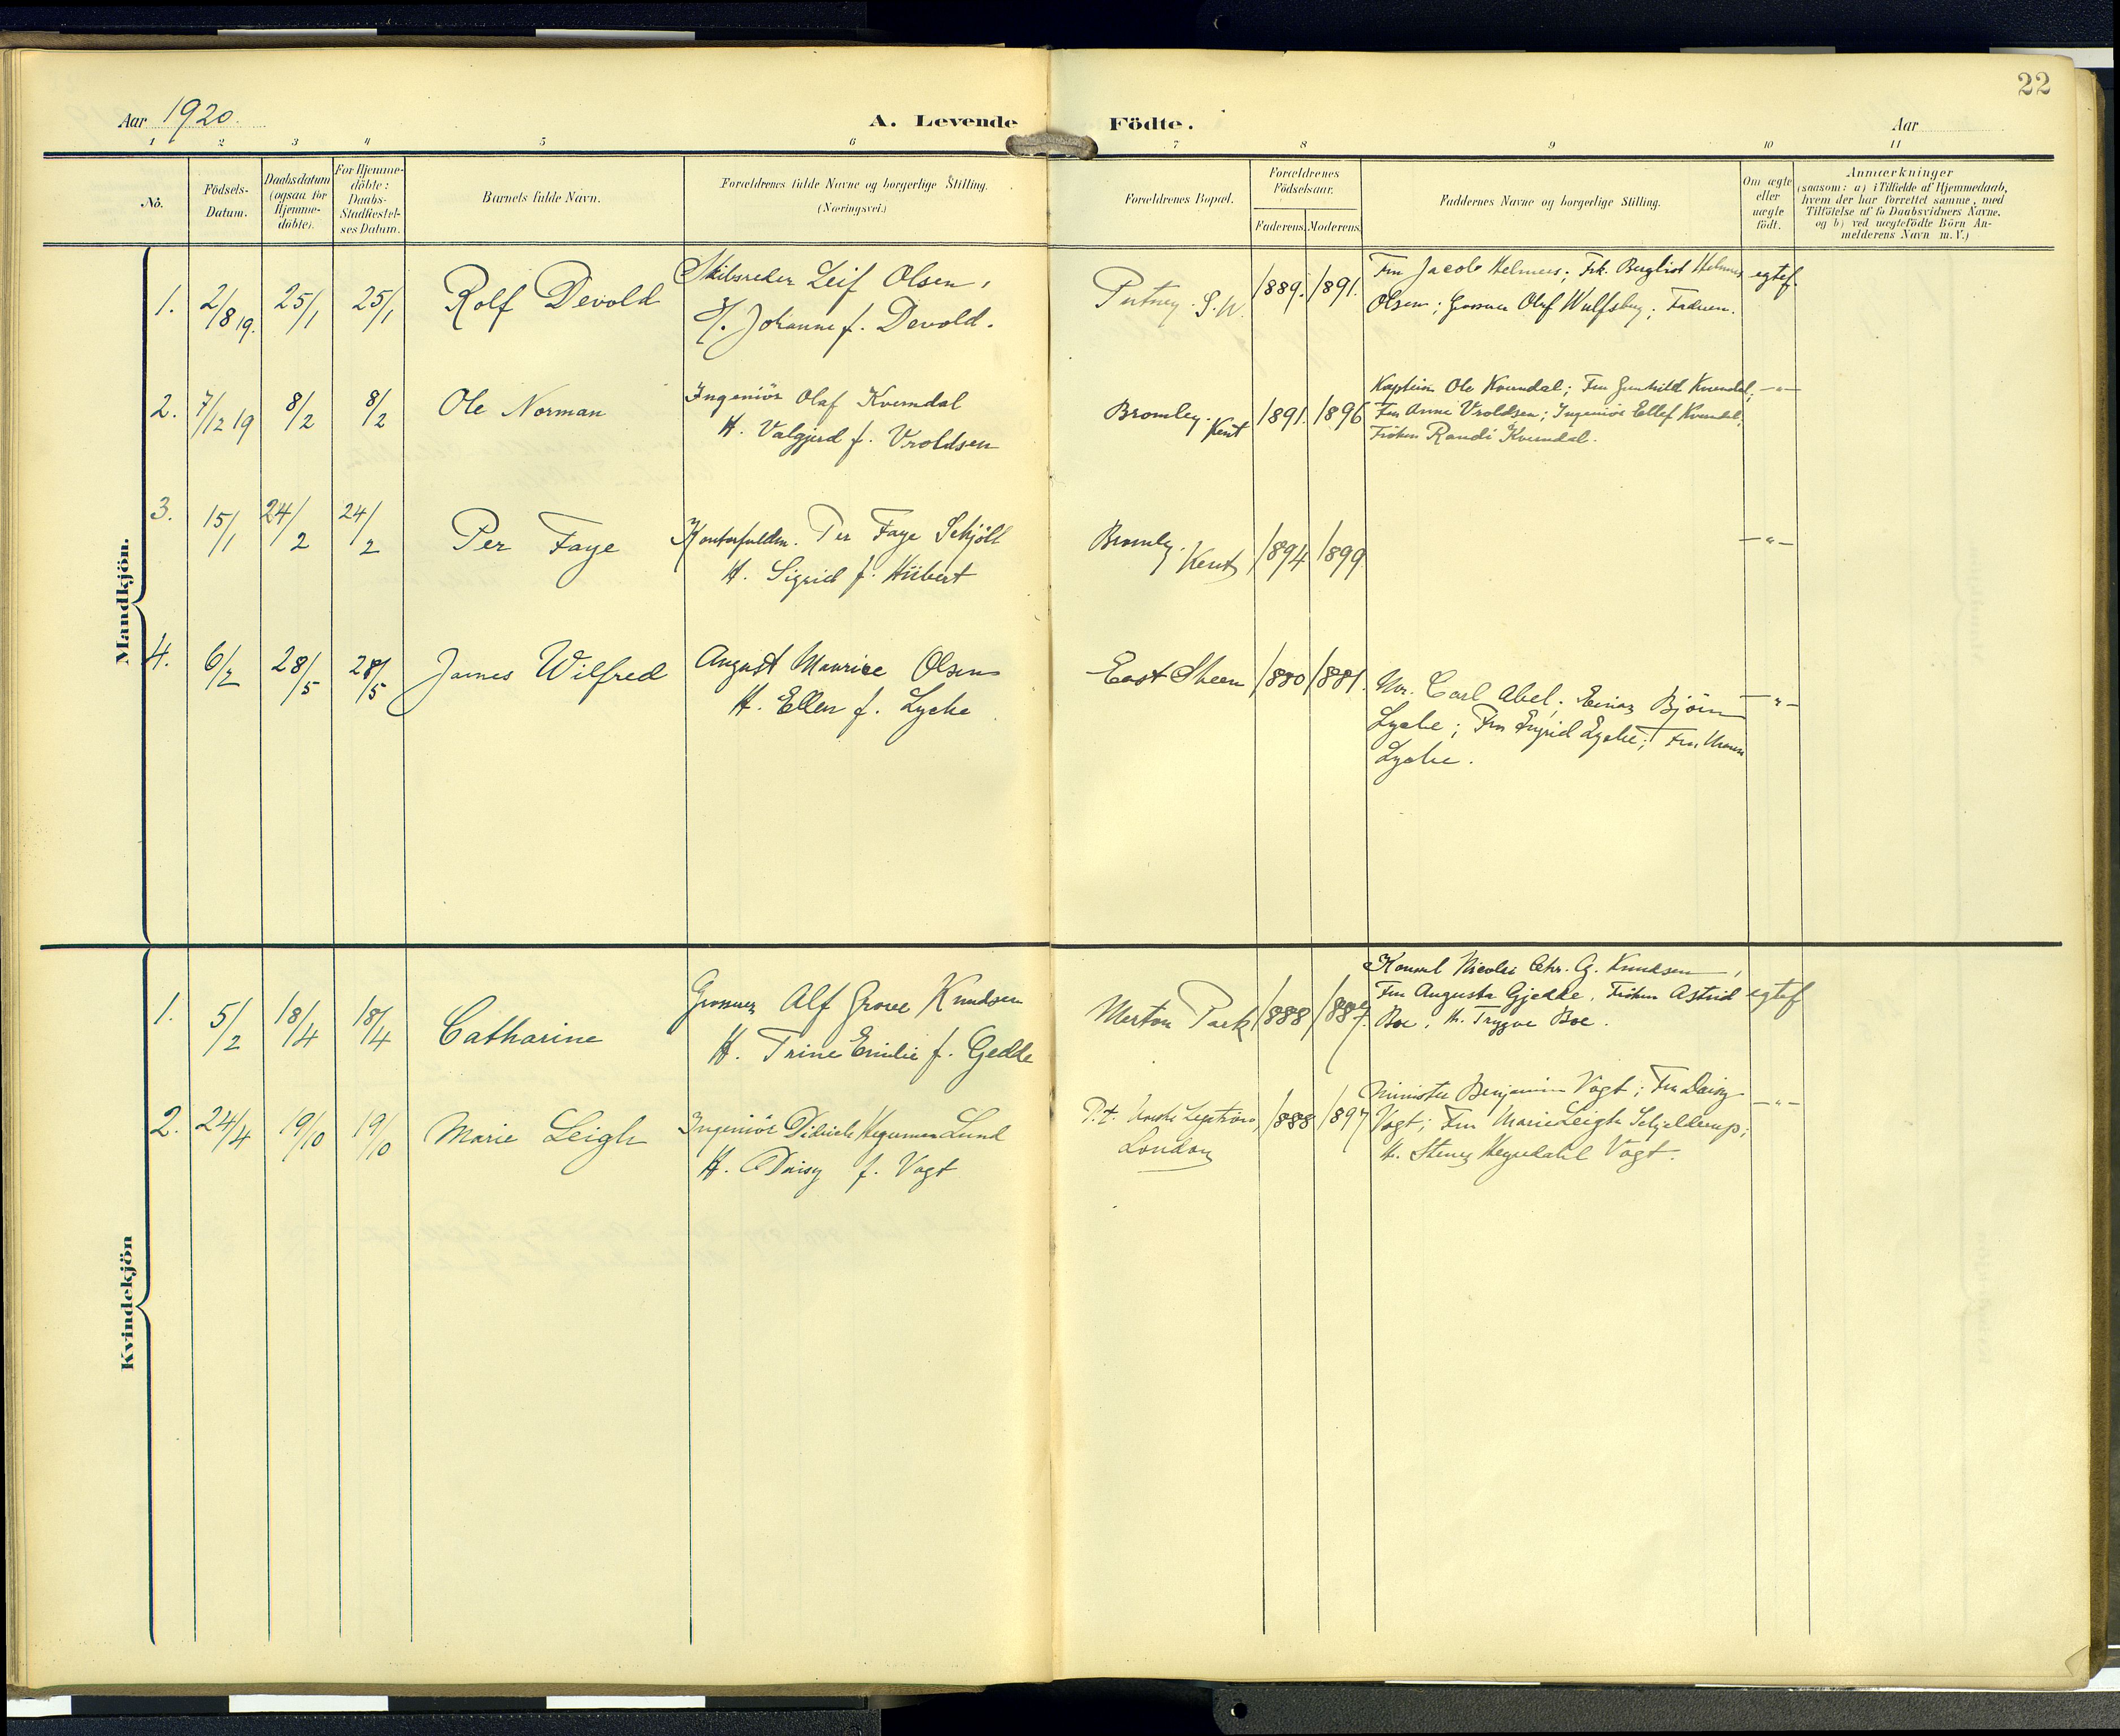 22
Aar 1920.
A. Levende Födte.
Aar
1 2 3 4 5 6 7 8 9 10 11
No.
Födsels-
Datum.
Daabsdatum
(ogsaa for
Hjemme-
döbte).
For Hjemme-
döbte:
Daabs-
Stadfæstel-
ses Datum.
Barnets fulde Navn.
Forældrenes fulde Navne og borgerlige Stilling.
(Næringsvei.)
Forældrenes Bopæl.
Forældrenes
Födselsaar.
Faderens. Moderens.
Faddernes Navne og borgerlige Stilling.
Om ægte
eller
uægte
födt.
Anmærkninger
(saasom: a) i Tilfælde af Hjemmedaab,
hvem der har forrettet samme, med
Tilföielse af to Daabsvidners Navne,
og b) ved uægtefödte Börn An-
melderens Navn m. V.)
Mandkjön.
1. 2/8 19. 25/1 25/1 Rolf Devold
Skibsreder Leif Olsen,
H. Johanne f. Devold.
Putney. S.W. 1889. 1891.
Fru Jacob Helmers; Frk. Helmers
Olsen; Grosserer Oluf Wulfsberg; Faderen.
egtef.
2. 7/12 19 8/2 8/2 Ole Norman
Ingeniör Olaf Kverndal
H. Valgjerd f. Vroldsen
Bromley. Kent 1891. 1896
Kaptein Ole Kverndal; Fru Gunhild Kverndal;
Fru Anne Vroldsen; Ingeniör Ellef Kverndal;
Fröken Randi Kverndal.
—"—
3. 15/1 24/2 24/2 Per Faye
Per Faye Schjöll
H. Sigrid f. Hübert
Bromley. Kent 1894 1899
—"—
4. 6/2 28/5 28/5 James Wilfred
August Maurice Olsen
H. Ellen f. Lyche
East Sheen 1880 1881.
Mr. Carl Abel; Einar Björn
Lyche; Fru Ingrid Lyche; Fru
Lyche.
—"—
Kvindekjön
1. 5/2 18/4 18/4 Catharine
Grosserer Alf Grove Knudsen
H. Trine Emilie f. Gedde
Merton Park 1888 1887.
Konsul Nicolai Chr. G. Knudsen,
Fru Augusta Gjedde, Fröken Astrid
Boe, H. Trygve Boe.
egtef
2. 24/4 19/10 19/10 Marie Leigh
Ingeniör Didrich Hegerman Lund
H. Daisy f. Vogt
P.t. Norske Legation,
London
1888 1897
Minister Benjamin Vogt; Fru Daisy
Vogt; Fru Marie Leigh Schjelderup;
H. Heyerdahl Vogt.
—"—